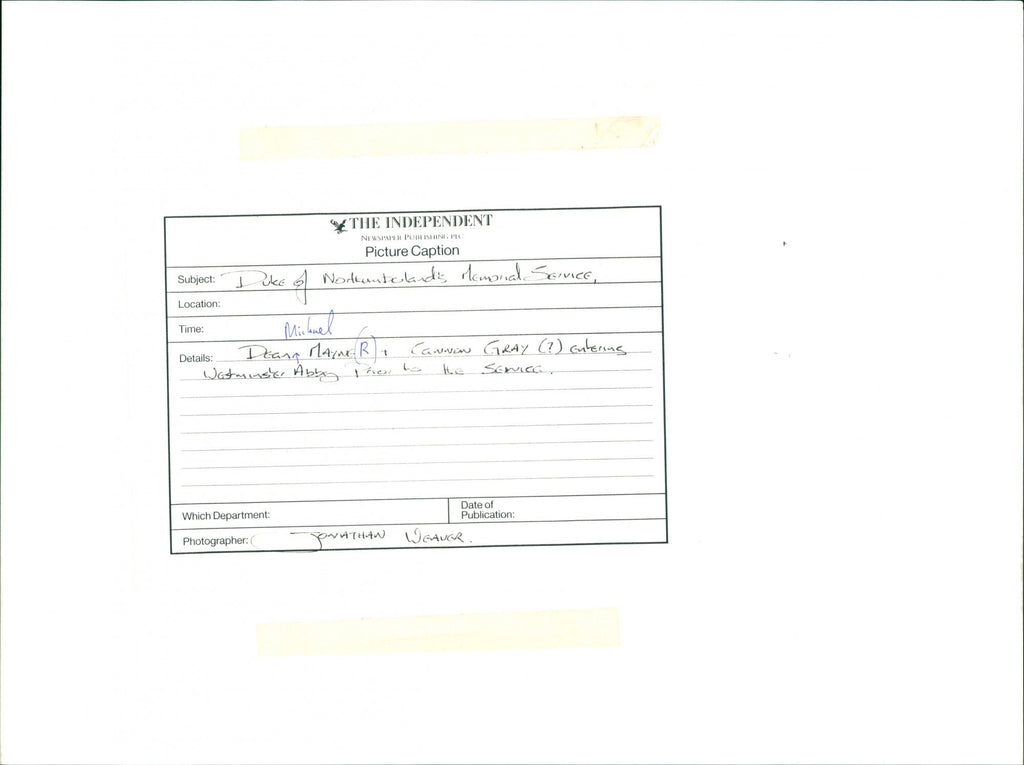 THE INDEPENDENT
NEWSPAPER PUBLISHING PLC
Picture Caption
Subject: Duke of Northumberland's Memorial Service,
Location:
Time:
Michael
Details: Dean Mayne (R) + Cannon GRAY (?) entering
Westminster Abbey Prior to the SERVICE.
Which Department:
Date of
Publication:
Photographer: JONATHAN WEAVER.